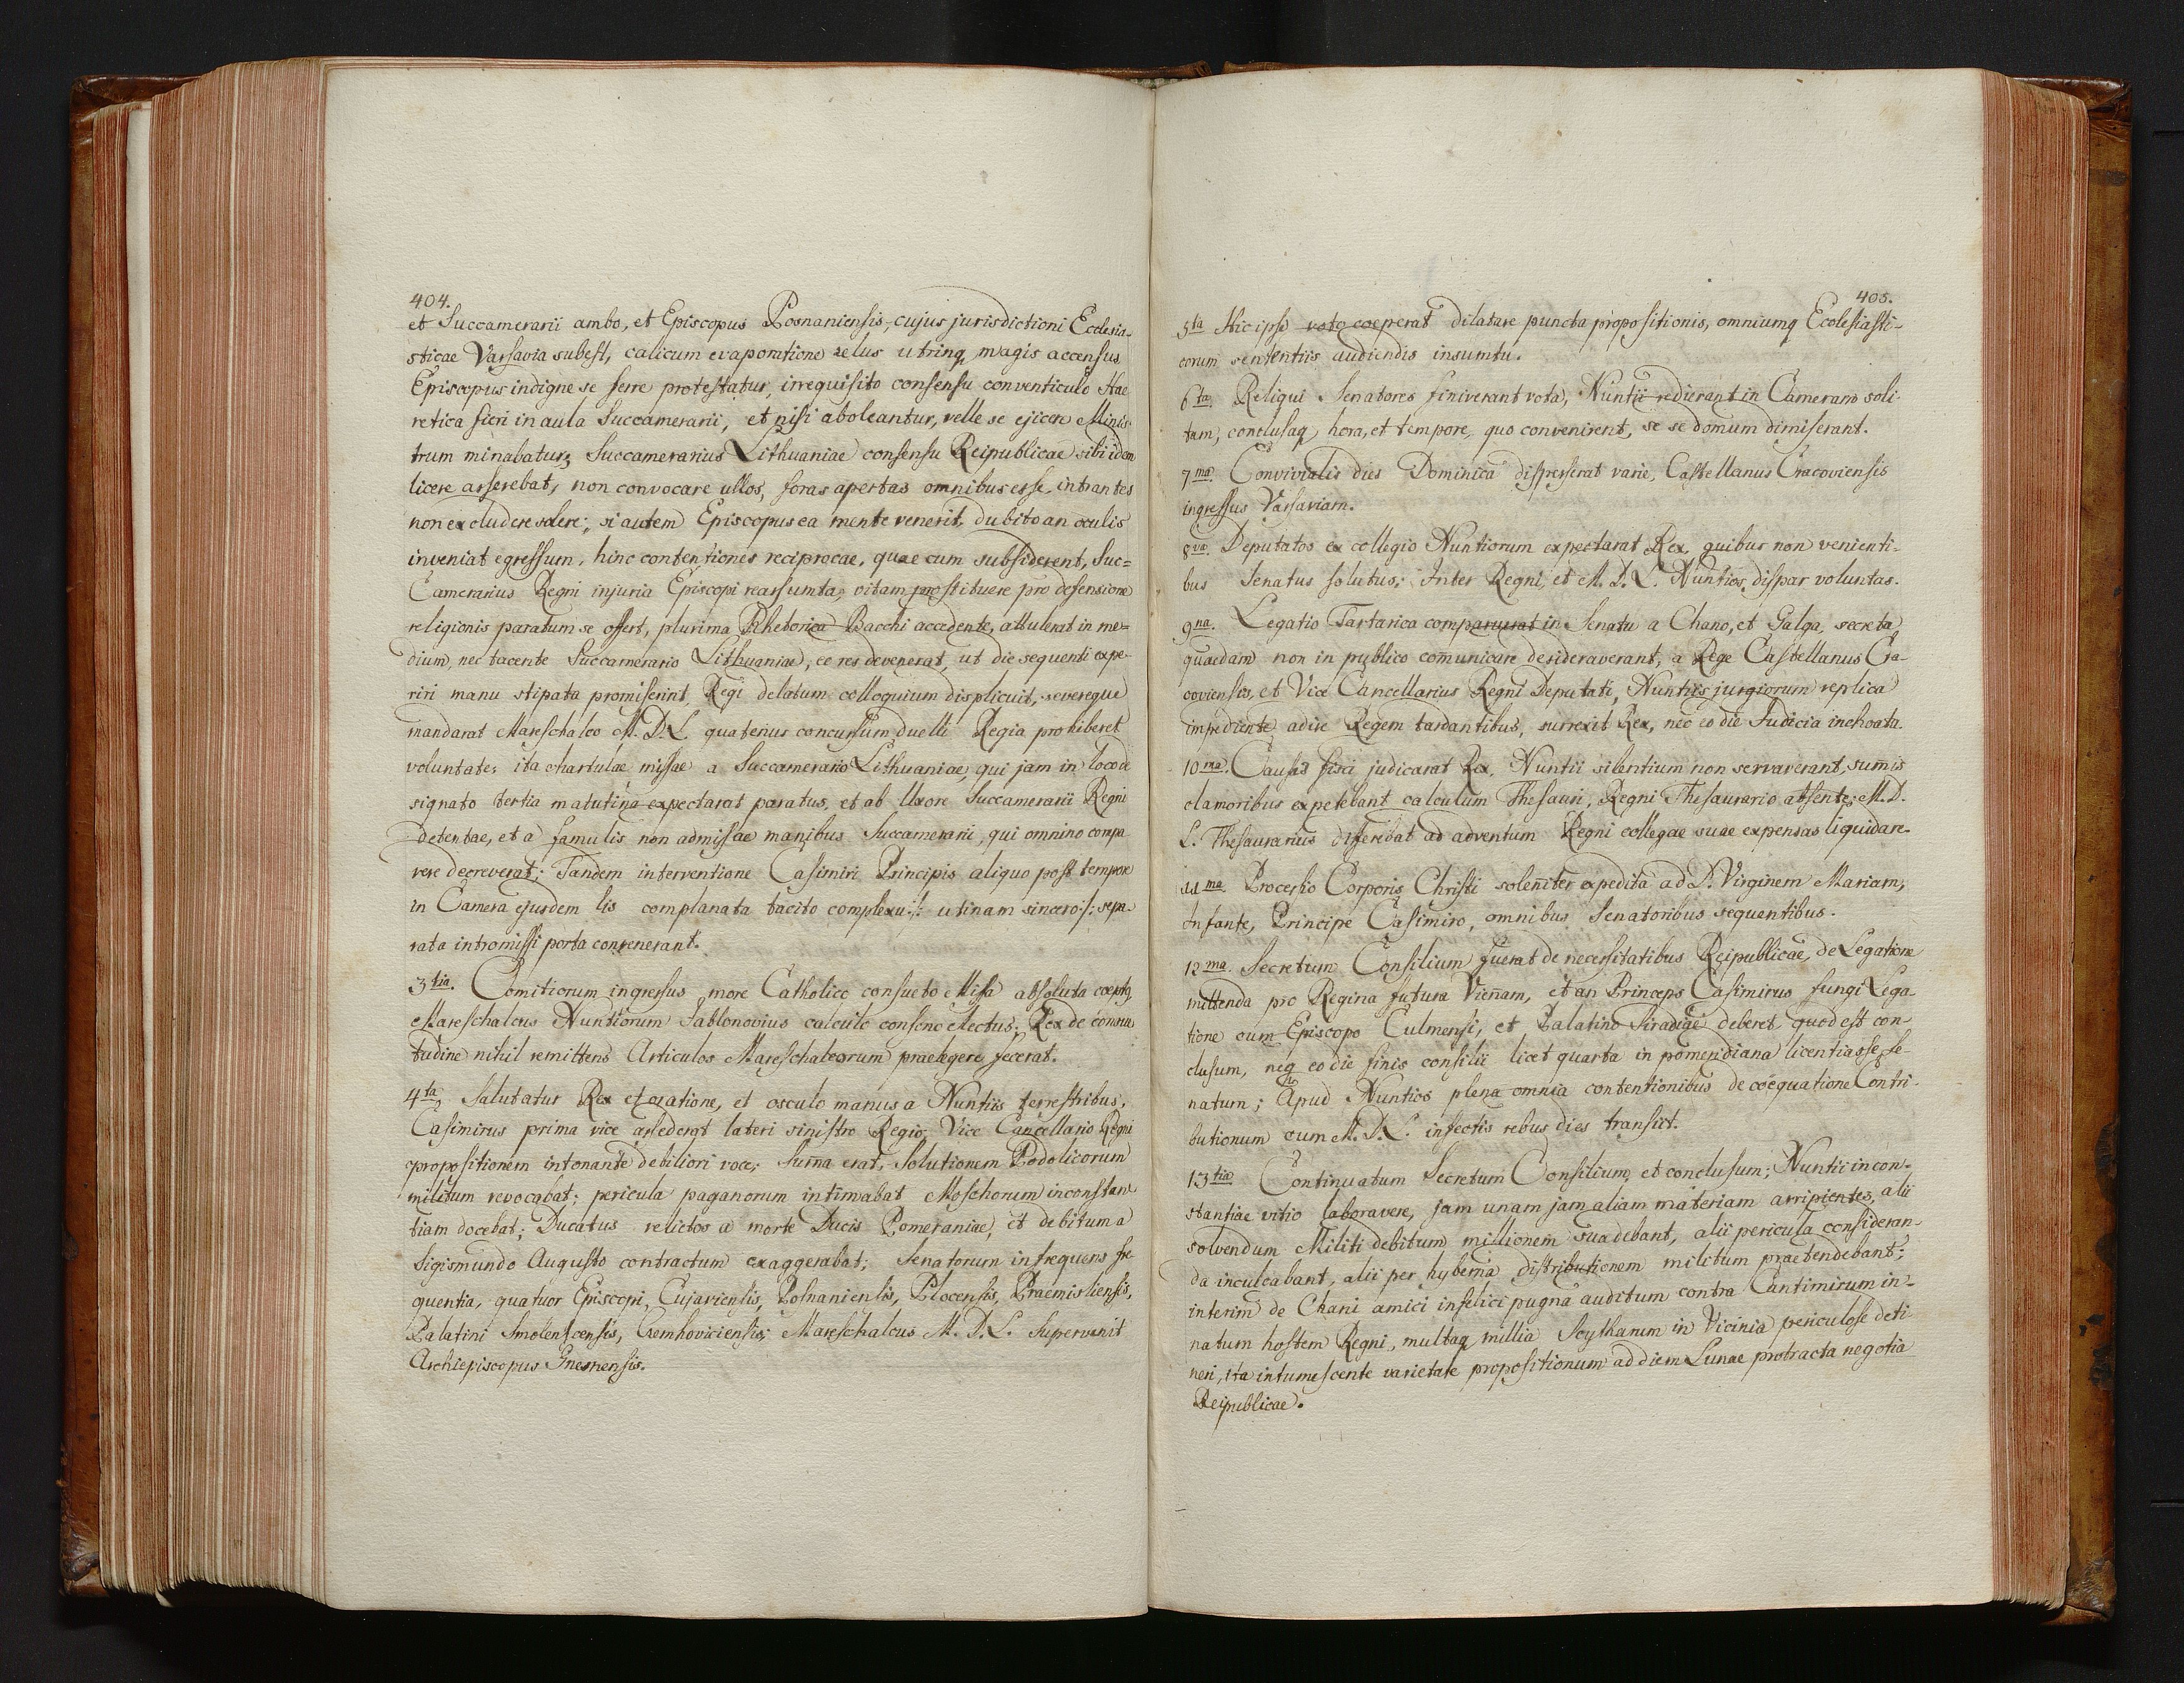 404.
et Succamerarii ambo, et Episcopus Posnaniensis, cujus jurisdictioni Ecclesia-
sticae Varsavia subest, calicum evaporatione zelus utrinq, magis accensus
Episcopus indigne se ferre protestatur, irrequisito consensu conventiculo Hae
retica fieri in aula Succamerarii, et nisi aboleantur, velle se ejicere Minis-
trum minabatur; Succamerarius Lithuaniae consensu Reipublicae sibi idem
licere asserebat, non convocare ullos, foras apertas omnibus esse, intrantes
non excludere solere; si autem Episcopus ea mente venerit, dubito an oculis
inveniat egressum, hinc contentiones reciprocae, quae cum subsiderent, Suc=
Camerarius Regni injuria Episcopi reassumta, vitam prostituere pro defensione
religionis paratum se offert, plurima Rhetorica Bacchi accedente, attulerat in me=
dium, nec tacente Succamerario Lithuaniae, eo res devenerat, ut die sequenti expe-
riri manu stipata promiserint, Regi delatum colloquium displicuit, severeque
mandarat Mareschalco M. D. L. quatenus concursum duelli Regia prohiberet
voluntate; ita chartulae missae a Succamerario Lithuaniae, qui jam in loco de
signato tertia matutina expectarat paratus, et ab Uxore Succamerarii Regni
detentae, et a famulis non admissae manibus Succamerarii, qui omnino compa
rere decreverat; Tandem interventione Casimiri Principis aliquo post tempore
in Camera ejusdem lis complanata tacito complexu :/: utinam sincero :/: sepa-
rata intromissi porta convenerant.
3tia. Comitiorum ingressus more Catholico consueto Missa absoluta coeptq,
Mareschalcus Nuntiorum Jablonovius calculo consono electus; Rex de consue
tudine nihil remittens Articulos Mareschalcorum praelegere fecerat.
4ta. Salutatur Rex et oratione, et osculo manus a Nuntiis terrestribus,
Casimirus prima vice assederat lateri sinistro Regio; Vice Cancellario Regni
propositionem intonante debiliori voce; Sum̄a erat, Solutionem Podolicorum
militum revocabat; pericula paganorum intimabat Moschorum inconstan
tiam docebat; Ducatus relictos a morte Ducis Pomeraniae, et debitum a
Sigismundo Augusto contractum exaggerabat; Senatorum infrequens fre
quentia, quatuor Episcopi, Cujaviensis, Posnaniensis, Plocensis, Praemisliensis,
Palatini Smolenscensis, Czernhoviciensis; Mareschalcus M. D. L. Supervenit
Archiepiscopus Gnesnensis.
405.
5ta Hic ipse voto coeperat dilatare puncta propositionis, omniumq Ecclesiasti-
corum sententiis audiendis insumtu.
6ta. Reliqui Senatores finiverant vota, Nuntii redierant in Cameram soli-
tam, conclusaq hora, et tempore, quo convenirent, se se domum dimiserant.
7ma. Convivialis dies Dominica disperserat varie, Castellanus Cracoviensis
ingressus Varsaviam.
8va. Deputatos ex collegio Nuntiorum expectarat Rex, quibus non venienti-
bus Senatus solutus; Inter Regni, et M. D. L. Nuntios dispar voluntas.
9na. Legatio Tartarica comparuerat in Senatu a Chano, et Galga, secreta
quaedam non in publico com̄unicare desideraverant, a Rege Castellanus Cra-
coviensis, et Vice Cancellarius Regni Deputati, Nuntiis jurgiorum replica
impediente, adire Regem tardantibus, surrexit Rex, nec eo die Judicia inchoata.
10ma. Causas fisci judicarat Rex, Nuntii silentium non servaverant, sum̄is
clamoribus expetebant calculum Thesauri, Regni Thesaurario absente; M. D.
L. Thesaurarius differebat ad adventum Regni collegae suae expensas liquidare.
11ma Processio Corporis Christi solen̄iter expedita ad D. Virginem Mariam,
Infante, Principe Casimiro, omnibus Senatoribus sequentibus.
12ma. Secretum Consilium fuerat de necessitatibus Reipublicae, de Legatione
mittenda pro Regina futura Vien̄am, et an Princeps Casimirus fungi Lega-
tione cum Episcopo Culmensi, et Palatino Siradiae deberet, quod est con-
clusum, neq eo die finis consilii licet quarta in pomeridiana licentiasse Se-
natum; Apud Nuntios plena omnia contentionibus de coëquatione Contri-
butionum cum M. D. L. infectis rebus dies transiit.
13tia Continuatum Secretum Consilium, et conclusum; Nuntii incon-
stantiae vitio laboravere, jam unam jam aliam materiam arripientes, alii
solvendum Militi debitum millionem suadebant, alii pericula consideran-
da inculcabant, alii per hyberna distributionem militum praetendebant;
interim de Chani amici infelici pugna auditum contra Cantimirum in-
natum hostem Regni, multaq millia Scytharum in Vicinia periculose deti
neri, ita intumescente varietate propositionum ad diem Lunae protracta negotia
Reipublicae.